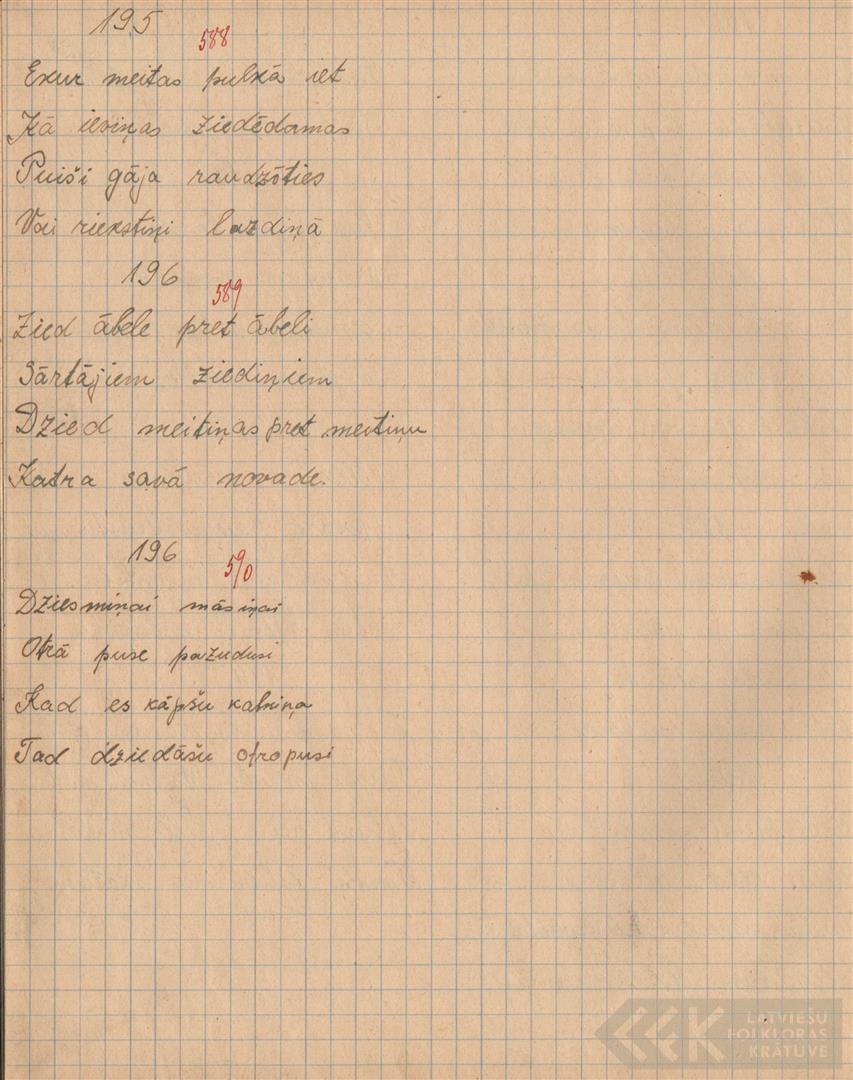 195
588
Exur meitas pulkā iet
Kā ieviņas ziedēdamas
Puiši gāja raudzīties
Vai riekstiņi lazdiņā
196
589
Zied ābele pret ābeli
Sārtājiem ziediņiem
Dzied meitiņas pret meitiņu
Katra savā novade.
196
590
Dziesmiņai māsiņai
Otrā puse pazudusi
Kad es kāpšu kalniņa
Tad dziedāšu otropusi
LATVIEŠU
FOLKLORAS
KRĀTUVE